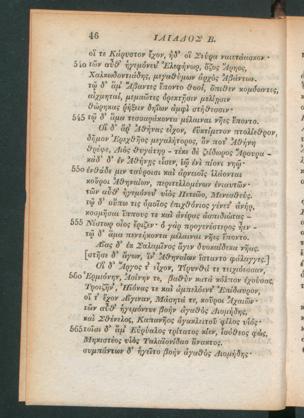 46 ΙΛΙΑΔΟΣ Β.
οἵ τε Κάρυστον ἔχον, ἠδ' οἳ Στύρα ναιετάασκον·
540 τῶν αὖθ' ἡγεμόνευ' Ἐλεφήνωρ, ὄζος Ἄρηος,
Χαλκωδοντιάδης, μεγαθύμων ἀρχὸς Ἀβάντων.
τῷ δ' ἅμ' Ἄβαντες ἕποντο θοοί, ὄπιθεν κομόωντες,
αἰχμηταί, μεμαῶτες ὀρεκτῇσιν μελίῃσιν
θώρηκας ῥήξειν δηΐων ἀμφὶ στήθεσσιν·
545 τῷ δ' ἅμα τεσσαράκοντα μέλαιναι νῆες ἕποντο.
Οἳ δ' ἄρ' Ἀθήνας εἶχον, ἐϋκτίμενον πτολίεθρον,
δῆμον Ἐρεχθῆος μεγαλήτορος, ὅν ποτ' Ἀθήνη
θρέψε, Διὸς θυγάτηρ - τέκε δὲ ζείδωρος Ἄρουρα -
κὰδ δ' ἐν Ἀθήνῃς εἷσεν, ἑῷ ἐνὶ πίονι νηῷ·
550 ἐνθάδε μιν ταύροισι καὶ ἀρνειοῖς ἱλάονται
κοῦροι Ἀθηναίων, περιτελλομένων ἐνιαυτῶν·
τῶν αὖθ' ἡγεμόνευ' υἱὸς Πετεῶο, Μενεσθεύς.
τῷ δ' οὔπω τις ὁμοῖος ἐπιχθόνιος γένετ' ἀνήρ,
κοσμῆσαι ἵππους τε καὶ ἀνέρας ἀσπιδιώτας -
555 Νέστωρ οἶος ἔριζεν· ὁ γὰρ προγενέστερος ἦεν -
τῷ δ' ἅμα πεντήκοντα μέλαιναι νῆες ἕποντο.
Αἴας δ' ἐκ Σαλαμῖνος ἄγεν δυοκαίδεκα νῆας.
[στῆσε δ' ἄγων, ἵν' Ἀθηναίων ἵσταντο φάλαγγες.]
Οἳ δ' Ἄργος τ' εἶχον, Τίρυνθά τε τειχιόεσσαν,
560 Ἑρμιόνην, Ἀσίνην τε, βαθὺν κατὰ κόλπον ἐχούσας,
Τροιζῆν', Ἠϊόνας τε καὶ ἀμπελόεντ' Ἐπίδαυρον,
οἵ τ' ἔχον Αἴγιναν, Μάσητά τε, κοῦροι Ἀχαιῶν·
τῶν αὖθ' ἡγεμόνευε βοὴν ἀγαθὸς Διομήδης,
καὶ Σθένελος, Καπανῆος ἀγακλειτοῦ φίλος υἱός·
565 τοῖσι δ' ἅμ' Εὐρύαλος τρίτατος κίεν, ἰσόθεος φώς,
Μηκιστέος υἱὸς Ταλαϊονίδαο ἄνακτος.
συμπάντων δ' ἡγεῖτο βοὴν ἀγαθὸς Διομήδης·